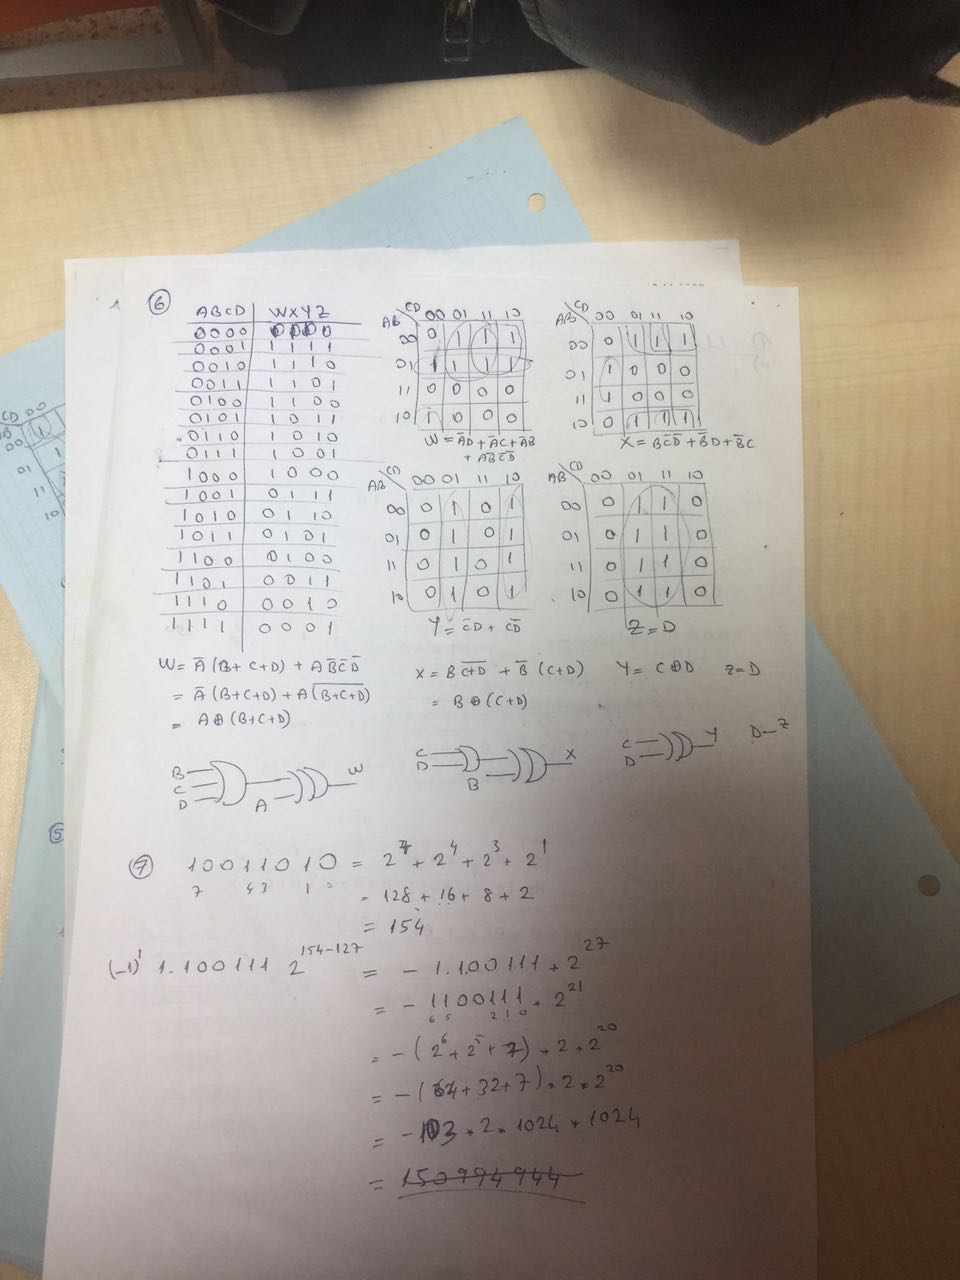 ⑥
ABCD WXYZ
0000 0000
0001 1111
0010 1110
0011 1101
0100 1100
0101 1011
0110 1010
0111 1001
1000 1000
1001 0111
1010 0110
1011 0101
1100 0100
1101 0011
1110 0010
1111 0001
AB CD 00 01 11 10
00 0 1 1 1
01 1 1 1 1
11 0 0 0 0
10 1 0 0 0
W = A̅D + A̅C + A̅B
+ AB̅C̅D̅
AB CD 00 01 11 10
00 0 1 1 1
01 1 0 0 0
11 1 0 0 0
10 0 1 1 1
X = BC̅D̅ + B̅D + B̅C
AB CD 00 01 11 10
00 0 1 0 1
01 0 1 0 1
11 0 1 0 1
10 0 1 0 1
Y = C̅D + CD̅
AB CD 00 01 11 10
00 0 1 1 0
01 0 1 1 0
11 0 1 1 0
10 0 1 1 0
Z = D
W = A̅(B+C+D) + AB̅C̅D̅
= A̅(B+C+D) + A(B+C+D)̅
= A⊕(B+C+D)
X = B(C+D)̅ + B̅(C+D)
= B⊕(C+D)
Y = C⊕D
Z = D
B
C
D
A
W
C
D
B
X
C
D
Y
D – Z
⑦ 10011010 = 2⁷ + 2⁴ + 2³ + 2¹
7 4 3 1 0
= 128 + 16 + 8 + 2
= 154
(-1)¹ 1.100111 2¹⁵⁴⁻¹²⁷ = - 1.100111 * 2²⁷
= - 1100111 * 2²¹
6 5 2 1 0
= -(2⁶ + 2⁵ + 7) * 2 * 2²⁰
= -(64 + 32 + 7) * 2 * 2²⁰
= -103 * 2 * 1024 * 1024
= 150994944
CD 00
00
01
11
10
⑤